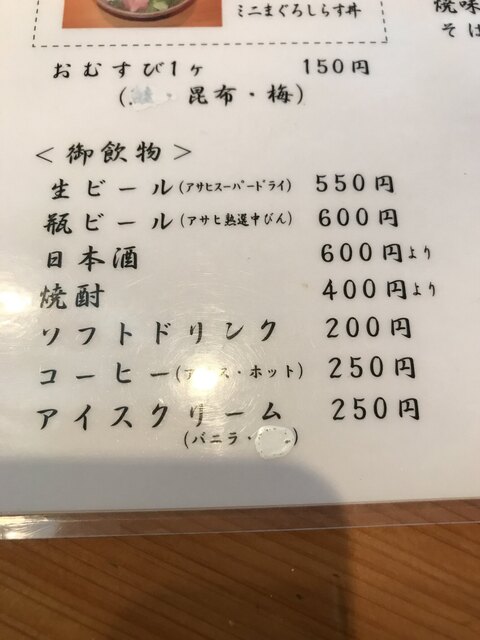 ミニまぐろしらす丼
焼味
そは
おむすび1ヶ 150円
(鮭・昆布・梅)
<御飲物>
生ビール(アサヒスーパードライ) 550円
瓶ビール(アサヒ熟選中びん) 600円
日本酒 600円より
焼酎 400円より
ソフトドリンク 200円
コーヒー(アイス・ホット) 250円
アイスクリーム 250円
(バニラ・ )